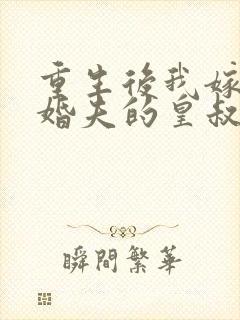 重生後我嫁
婚夫的皇叔
瞬間繁華